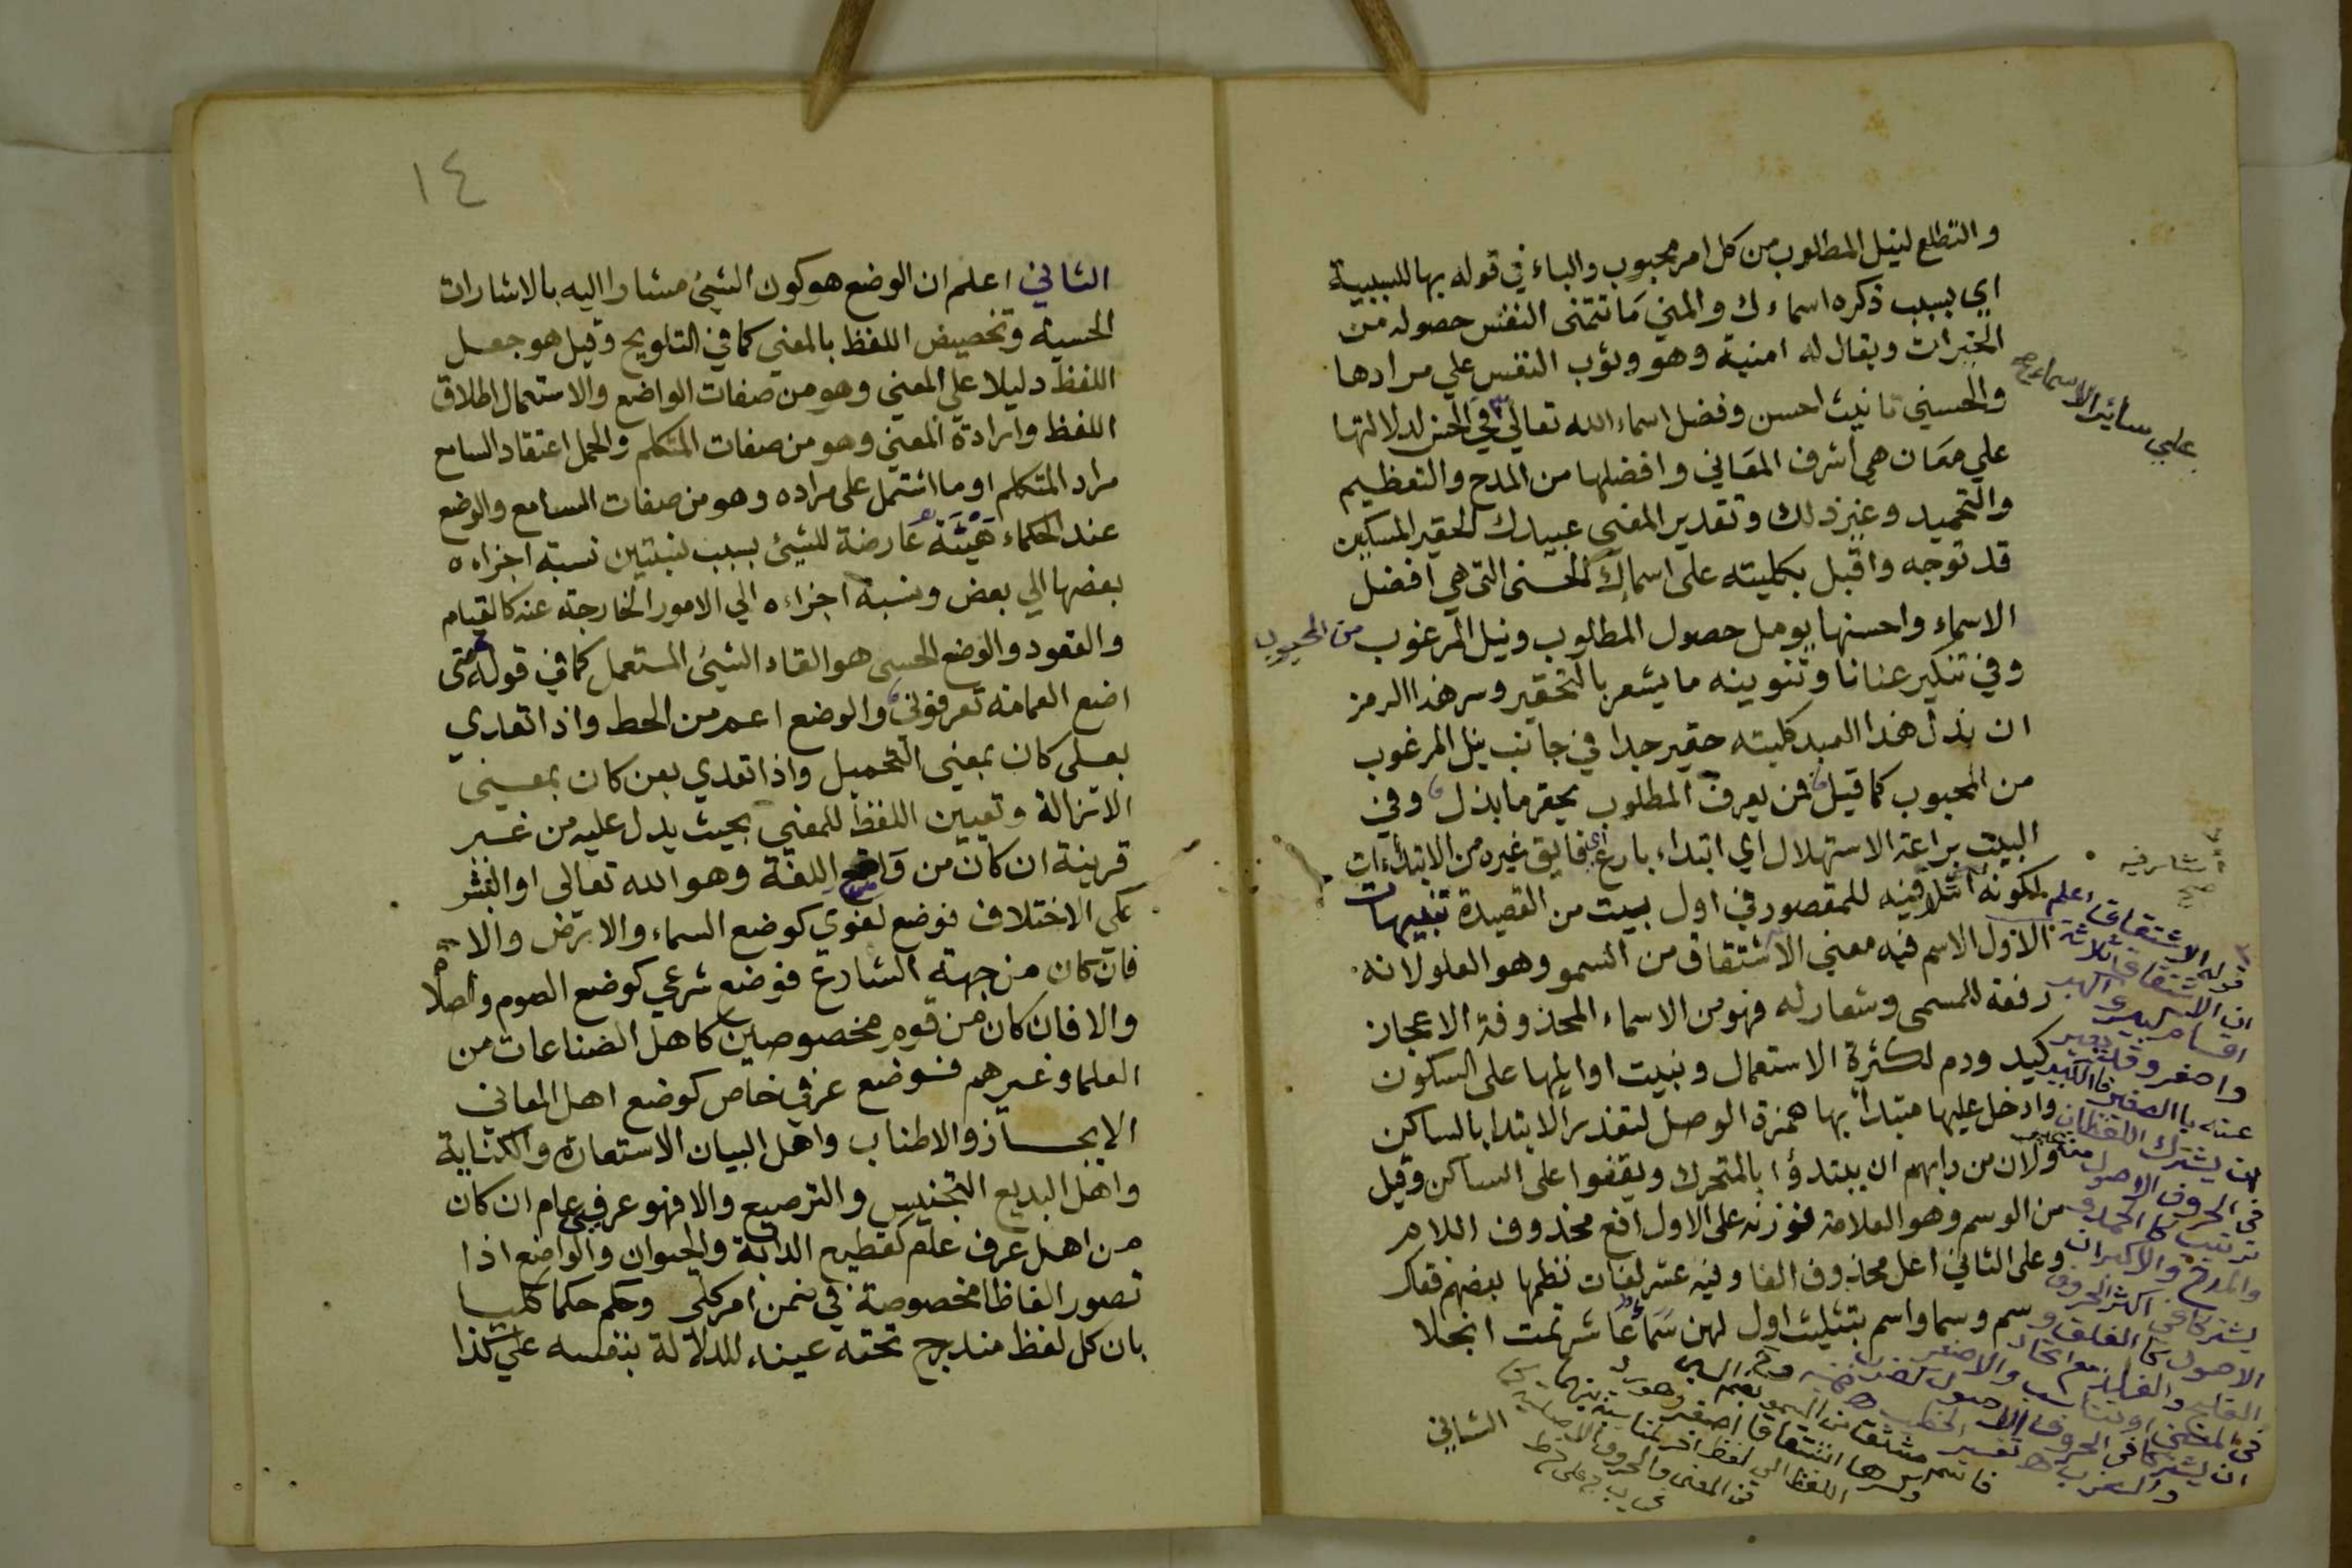 والتطلع لنيل المطلوب من كل امر محبوب والباء في قوله بها للسببية
اي بسبب ذكره اسماءك والمني مَا تتمنى النفس حصوله من
الخيرات ويقال له امنية وهو وثوب النفس علي مرادها
والحسني تانيث احسن وفضل اسماء الله تعالي في الحسن لدلالتها
علي سائر الاسماء صح
علي معَان هي اشرف المعَاني وافضلها من المدح والتعظيم
والتحميد وغير ذلك وتقدير المعني عبيدك الحقير المسكين
قد توجه واقبل بكليته على اسماك الحسنى التي هي افضل
الاسماء واحسنها يومل حصول المطلوب ونيل المرغوب من المحبوب
وفي تنكير عنانا وتنوينه ما يشعر بالتحقير وسر هذا الرمز
ان بذل هذا العبد كليته حقير جدا في جانب نيل المرغوب
من المحبوب كما قيل فمن يعرف المطلوب يحقر ما بذل وفي
البيت براعة الاستهلال اي ابتداء بارع اي فايق غيره من الابتداءات
لكونه اشار فيه للمقصود في اول بيت من القصيدة تنبيهات
اشار فيه
صح
الاول الاسم فيه معني الاشتقاق من السمو وهو العلو لانه
رفعة للمسمى وشعار له فهو من الاسماء المحذوفة الاعجاز
كيد ودم لكثرة الاستعمال وبنيت اوايلها على السكون
وادخل عليها مبتدأ بها همزة الوصل لتعذر الابتدا بالساكن
ولان من دابهم ان يبتدؤا بالمتحرك ويقفوا على الساكن وقيل
من الوسم وهو العلامة فوزنه على الاول افع محذوف اللام
وعلى الثاني اعل محذوف الفا وفيه عشر لغات نظمها بعضهم فقال
سم وسما واسم بتثليث اول لهن سَمَاء عَاشر تمت انجلا
الثاني
قوله الاشتقاق اعلم
ان الاشتقاق ثلاثة
اقسام كبير واكبر
واصغر وقد يعبر
عنه بالصغير فالكبير
ان يشترك اللفظان
في الحروف الاصول
ترتيب كالحمد
والمدح والاكبر ان
يشتركا في اكثر الحروف
الاصول كالفلق و
١٤
الثاني اعلم ان الوضع هو كون الشيئ مشارا اليه بالاشارات
الحسية وتخصيص اللفظ بالمعني كما في التلويح وقيل هو جعل
اللفظ دليلا علي المعني وهو من صفات الواضع والاستعمال اطلاق
اللفظ وارادة المعني وهو من صفات المتكلم والحمل اعتقاد السامع
مراد المتكلم او ما اشتمل على مراده وهو من صفات السامع والوضع
عند الحكماء هَيْئَة عَارضة للشيئ بسبب نسبتين نسبة اجزاءه
بعضها الي بعض ونسبة اجزاءه الي الامور الخارجة عنه كالقيام
والقعود والوضع الحسي هو القاء الشيئ المستعمل كما في قوله متى
اضع العمامة تعرفوني والوضع اعم من الحط واذا تعدي
بعلى كان بمعني التحميل واذا تعدي بعن كان بمعيني
الازالة وتعيين اللفظ للمعني بحيث يدل عليه من غير
قرينة ان كان من واضع اللغة وهو الله تعالى او البشر
على الاختلاف فوضع لغوي كوضع السماء والارض والا
فان كان من جهة الشارع فوضع شرعي كوضع الصوم والصلاة
والا فان كان من قوم مخصوصين كاهل الصناعات من
العلما وغيرهم فوضع عرفي خاص كوضع اهل المعاني
الإيجاز والاطناب واهل البيان الاستعارة والكناية
واهل البديع التجنيس والترصيع والا فهو عرفي عام ان كان
من اهل عرف عام كوضع الدابة والحيوان والواضع اذا
تصور الفاظا مخصوصة في ضمن امر كلي وحكم حكما كليا
بان كل لفظ مندرج تحته عينه للدلالة بنفسه على كذا